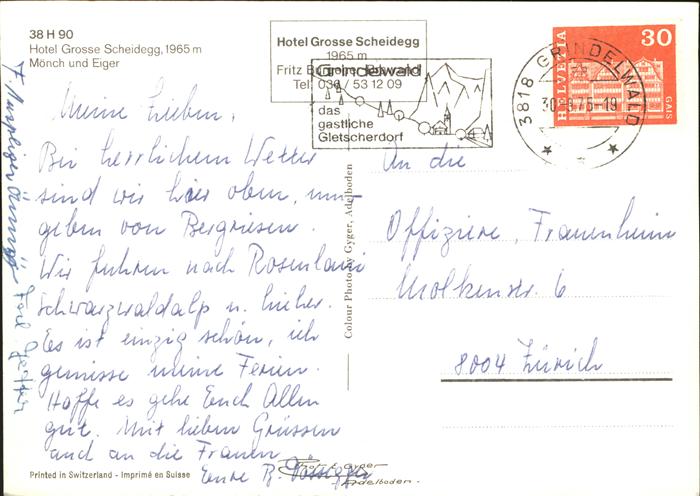 38 H 90
Hotel Grosse Scheidegg, 1965 m
Mönch und Eiger
Hotel Grosse Scheidegg
1965 m
Fritz
Tel. 036 / 53 12 09
Grindelwald
das
gastliche
Gletscherdorf
3818 GRINDELWALD
HELVETIA
30
GAIS
Meine Lieben,
Bei herrlichem Wetter
sind wir hier oben, um-
geben von Bergriesen.
Wir fuhren nach Rosenlaui
Schwarzwaldalp u. hieher.
Es ist einzig schön, ich
geniesse meine Ferien.
Hoffe es gehe Euch Allen
gut. Mit lieben Grüssen
auch an die Frauen
Eure B.
An die
Offiziere, Frauenheim
Molkenstr. 6
8004 Zürich
Colour Photo by Gyger, Adelboden
Printed in Switzerland - Imprimé en Suisse
Photo Gyger
Adelboden